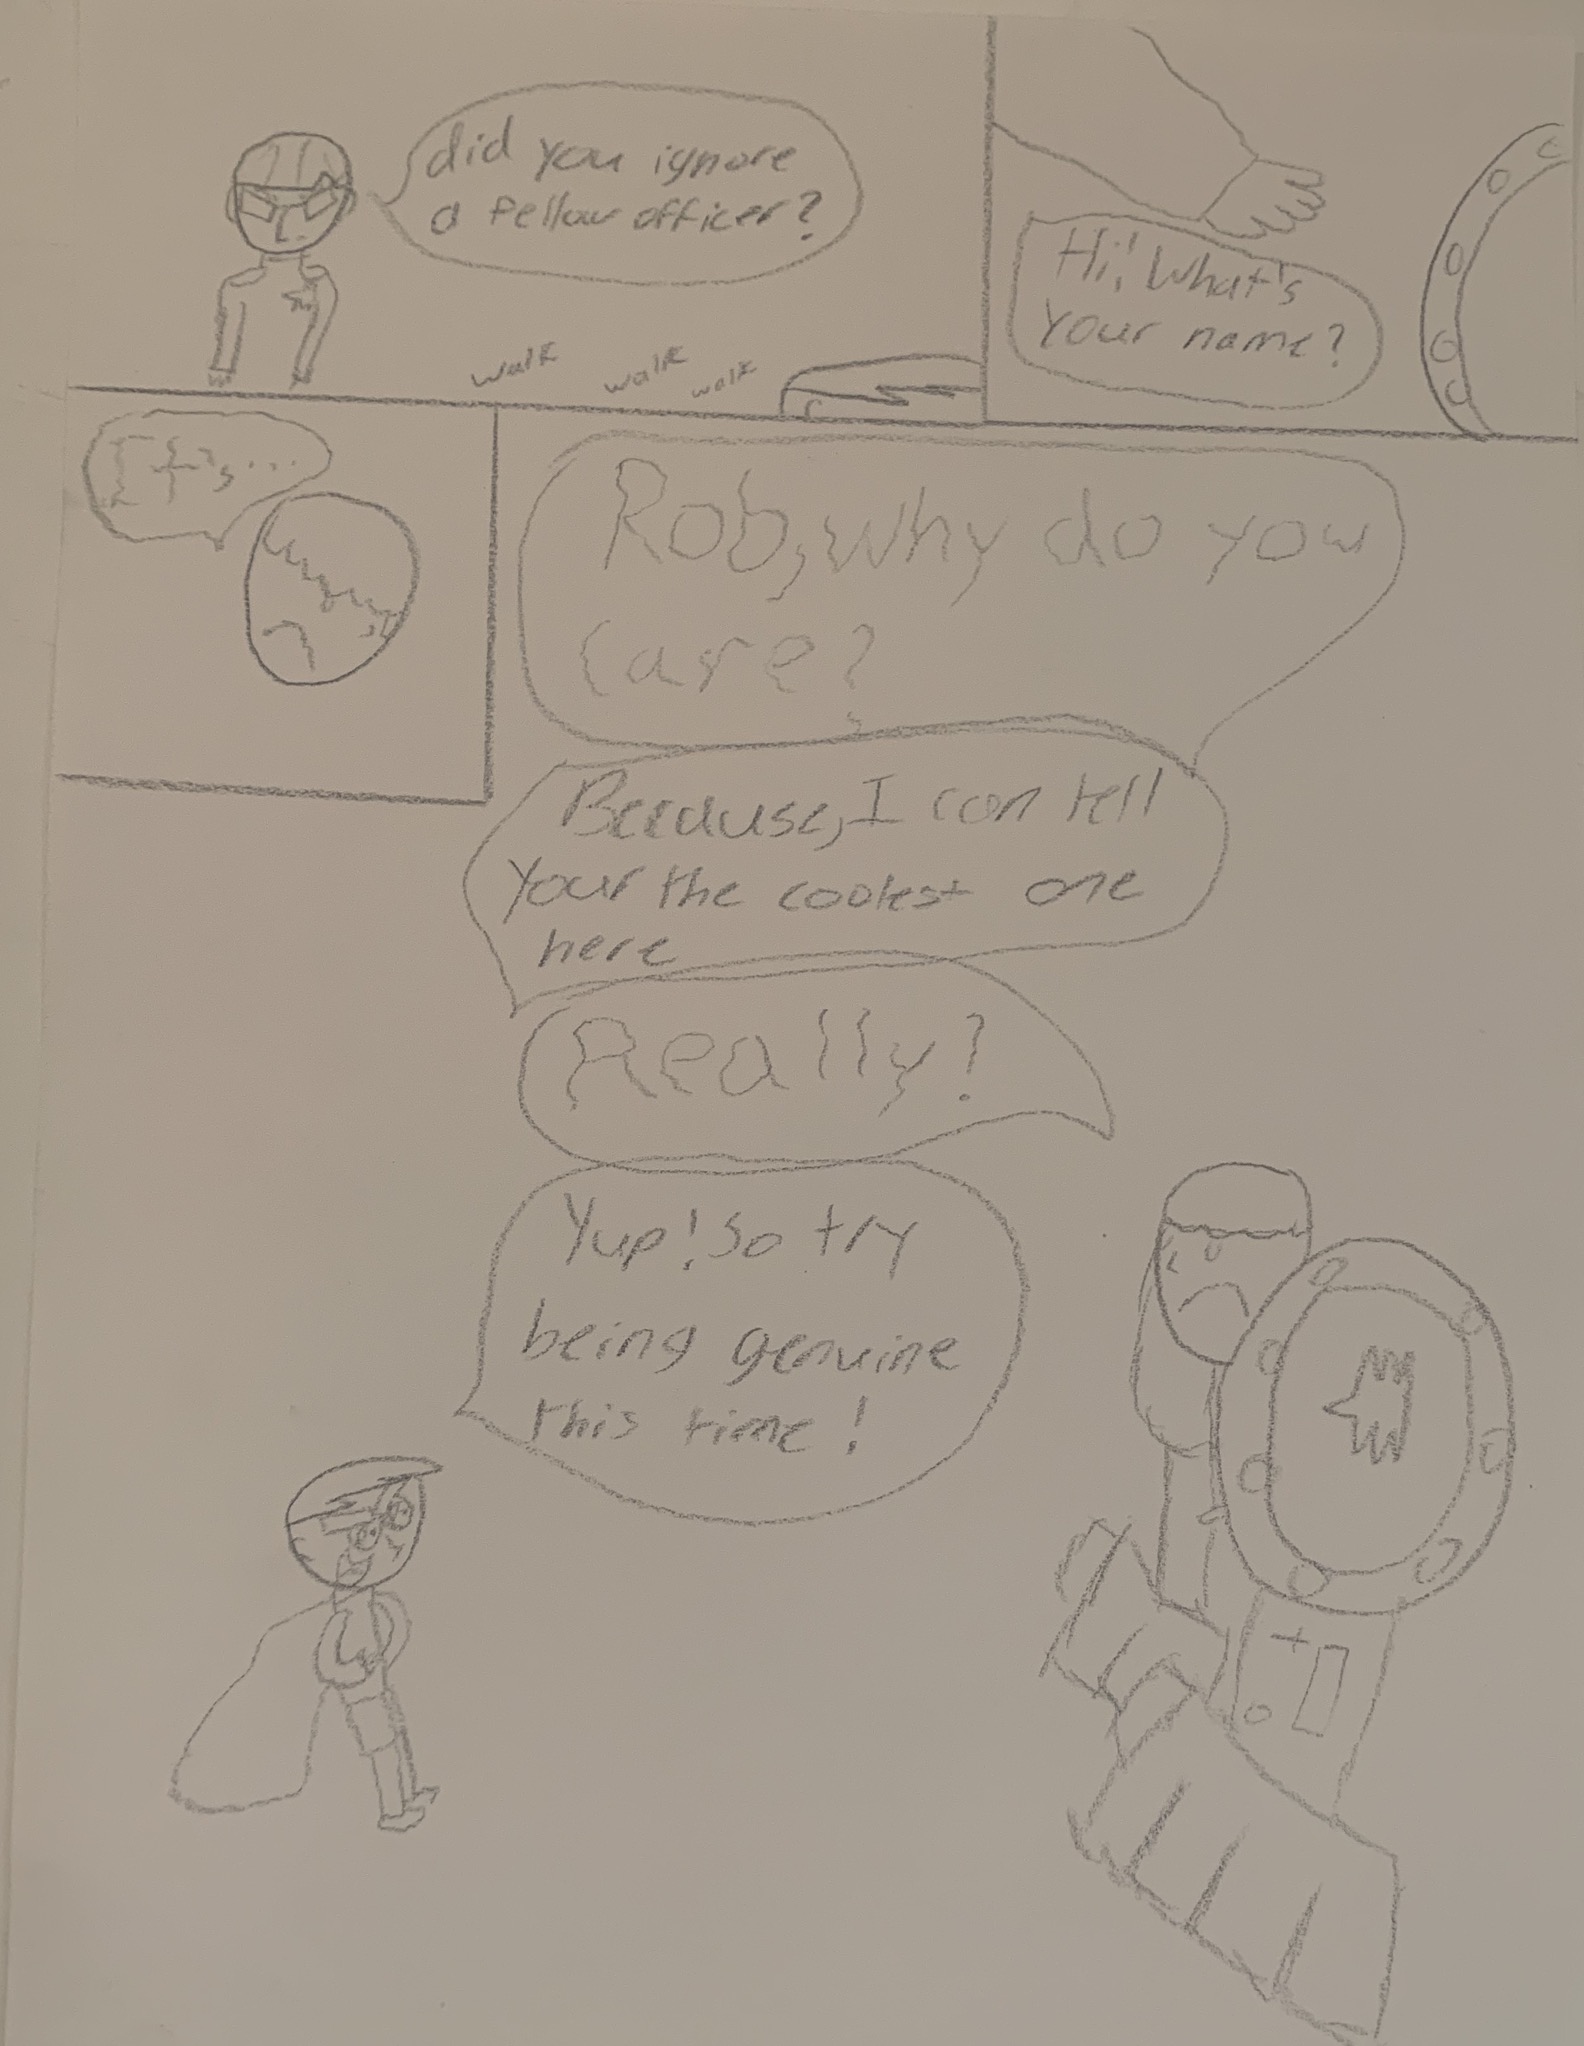 did you ignore
a fellow officer?
walk
walk
walk
Hi! What's
your name?
It's...
Rob, why do you
care?
Because, I can tell
your the coolest one
here
Really?
Yup! So try
being genuine
this time!